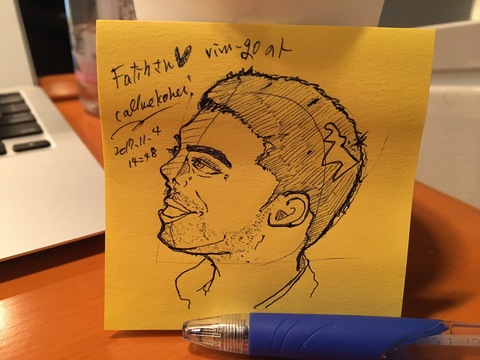 Fatihさん♥ vim-goat
callmekohei
2017.11.4
14:48